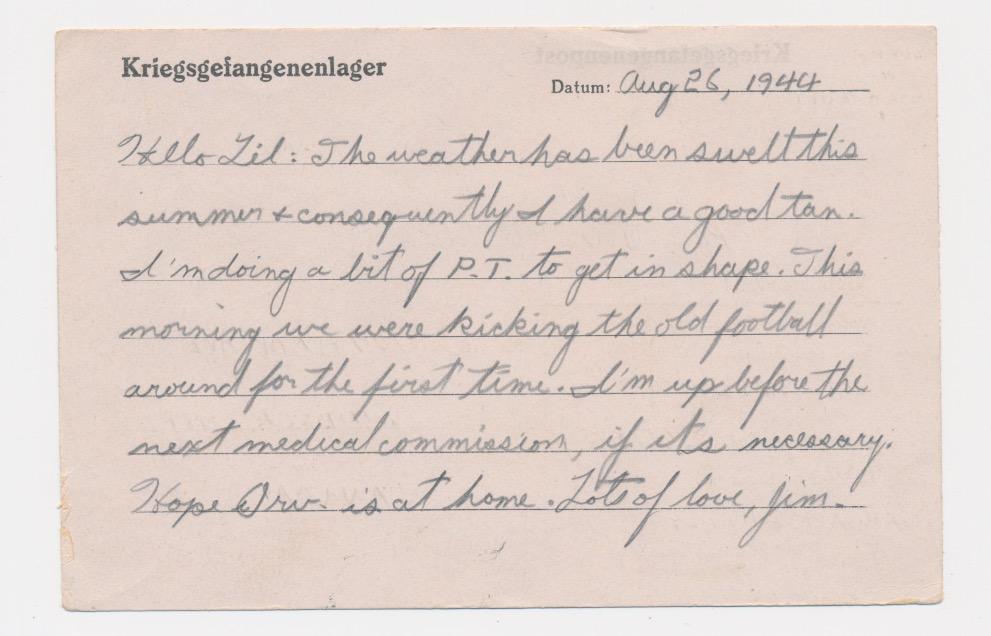 Kriegsgefangenenlager
Datum: Aug 26, 1944
Hello Lil: The weather has been swell this
summer & consequently I have a good tan.
I'm doing a bit of P.T. to get in shape. This
morning we were kicking the old football
around for the first time. I'm up before the
next medical commission, if it's necessary.
Hope Orv. is at home. Lots of love, Jim.